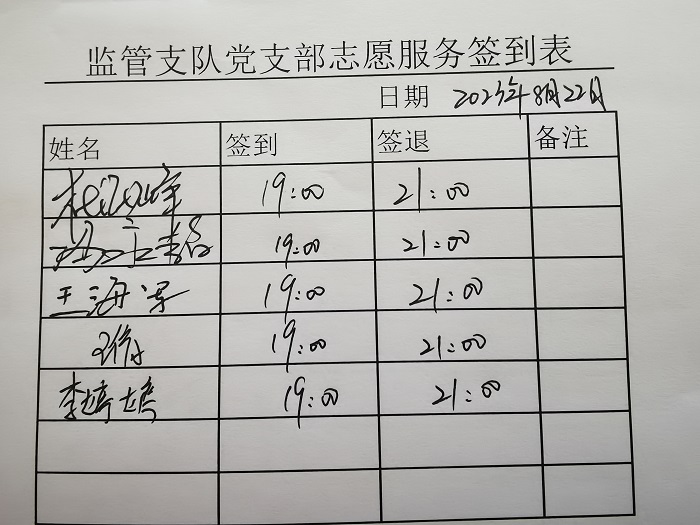 监管支队党支部志愿服务签到表
日期 2023年8月22日
姓名 签到 签退 备注
19:00 21:00
19:00 21:00
王海军 19:00 21:00
19:00 21:00
李婷婷 19:00 21:00